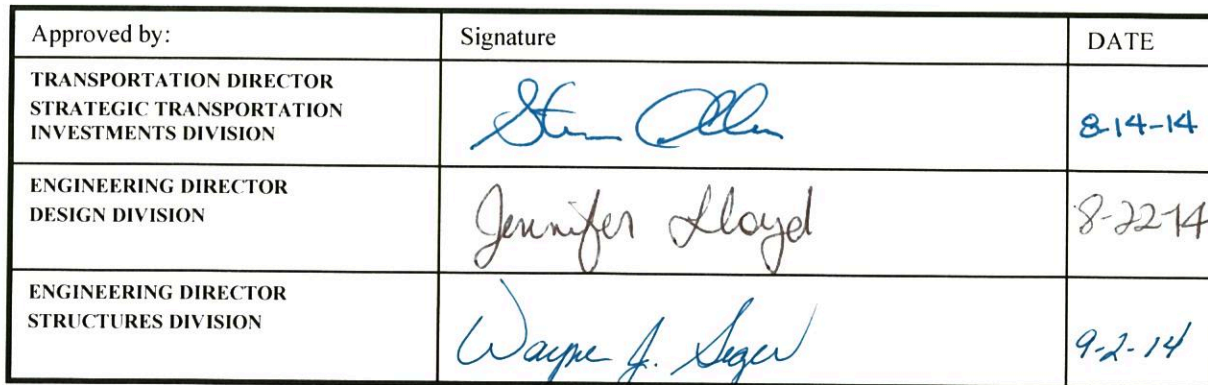 Approved by: Signature DATE
TRANSPORTATION DIRECTOR
STRATEGIC TRANSPORTATION
INVESTMENTS DIVISION
Steve Allen 8-14-14
ENGINEERING DIRECTOR
DESIGN DIVISION
Jennifer Lloyd 8-22-14
ENGINEERING DIRECTOR
STRUCTURES DIVISION
Wayne J. Seger 9-2-14